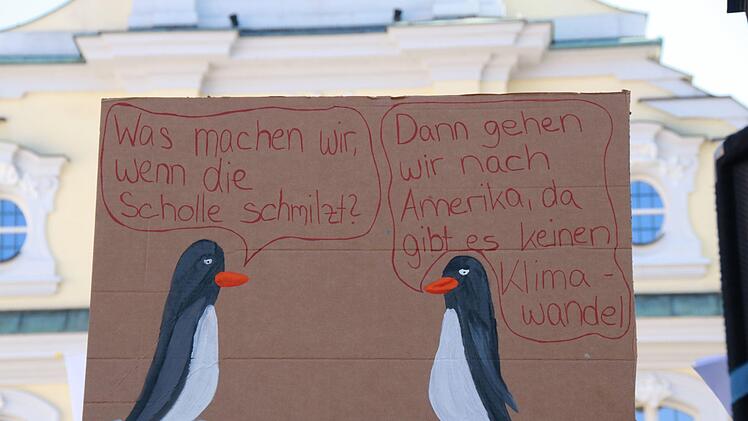 Was machen wir,
wenn die
Scholle schmilzt?
Dann gehen
wir nach
Amerika, da
gibt es keinen
Klima-
wandel